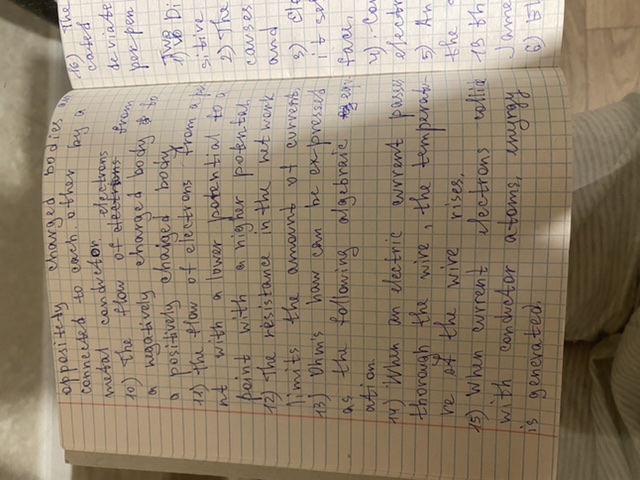 oppositety charged bodies
connected to each other by a
metal conductor electrons
10) The flow of electrons from
a negatively charged body to
a positively charged body
11) the flow of electrons from a
nt with a lower potential to
point with a higher potential.
12) The resistance in the network
limits the amount of current
13) Ohm's how can be expressed
as the following algebraic equ
ation.
14) When an electric current passes
thorough the wire, the temperatu-
re of the wire rises.
15) When current electrons collid
with conductor atoms, energy
is generated.
16) The
cated
deviate
per pen
Two Di
sitive
2) The
causes
and
3)
it
faces.
4)
electr
5) An
the
is th
Jame
6)